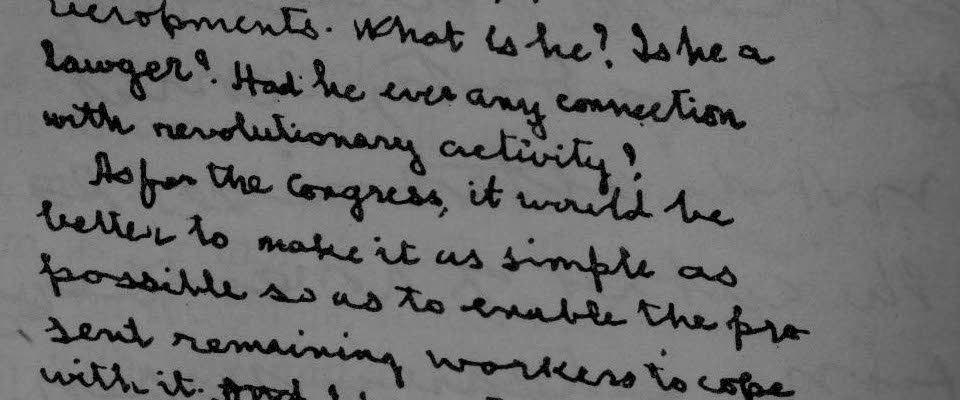 velopments. What is he? Is he a
lawyer?. Had he ever any connection
with revolutionary activity?
As for the Congress, it would be
better to make it as simple as
possible so as to enable the pre
sent remaining workers to cope
with it.